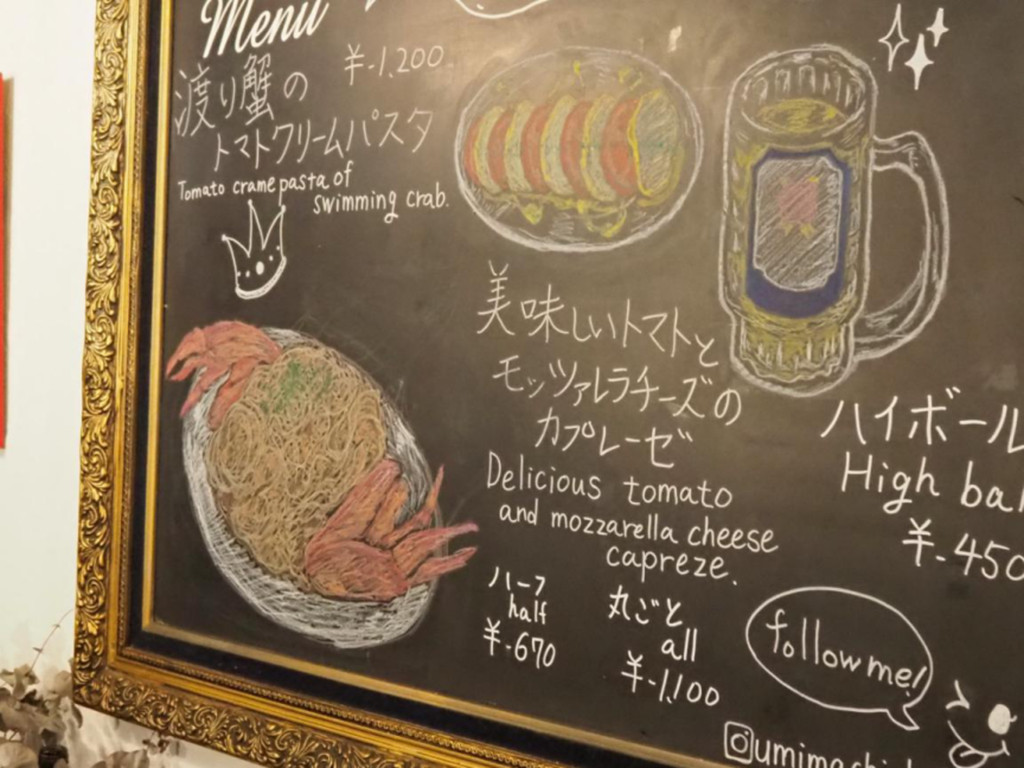 Menu
渡り蟹の
¥-1,200
トマトクリームパスタ
Tomato crame pasta of
swimming crab.
美味しいトマトと
モッツァレラチーズの
カプレーゼ
Delicious tomato
and mozzarella cheese
capreze.
ハーフ
half
¥-670
丸ごと
all
¥-1,100
ハイボール
High bal
¥-450
follow me!